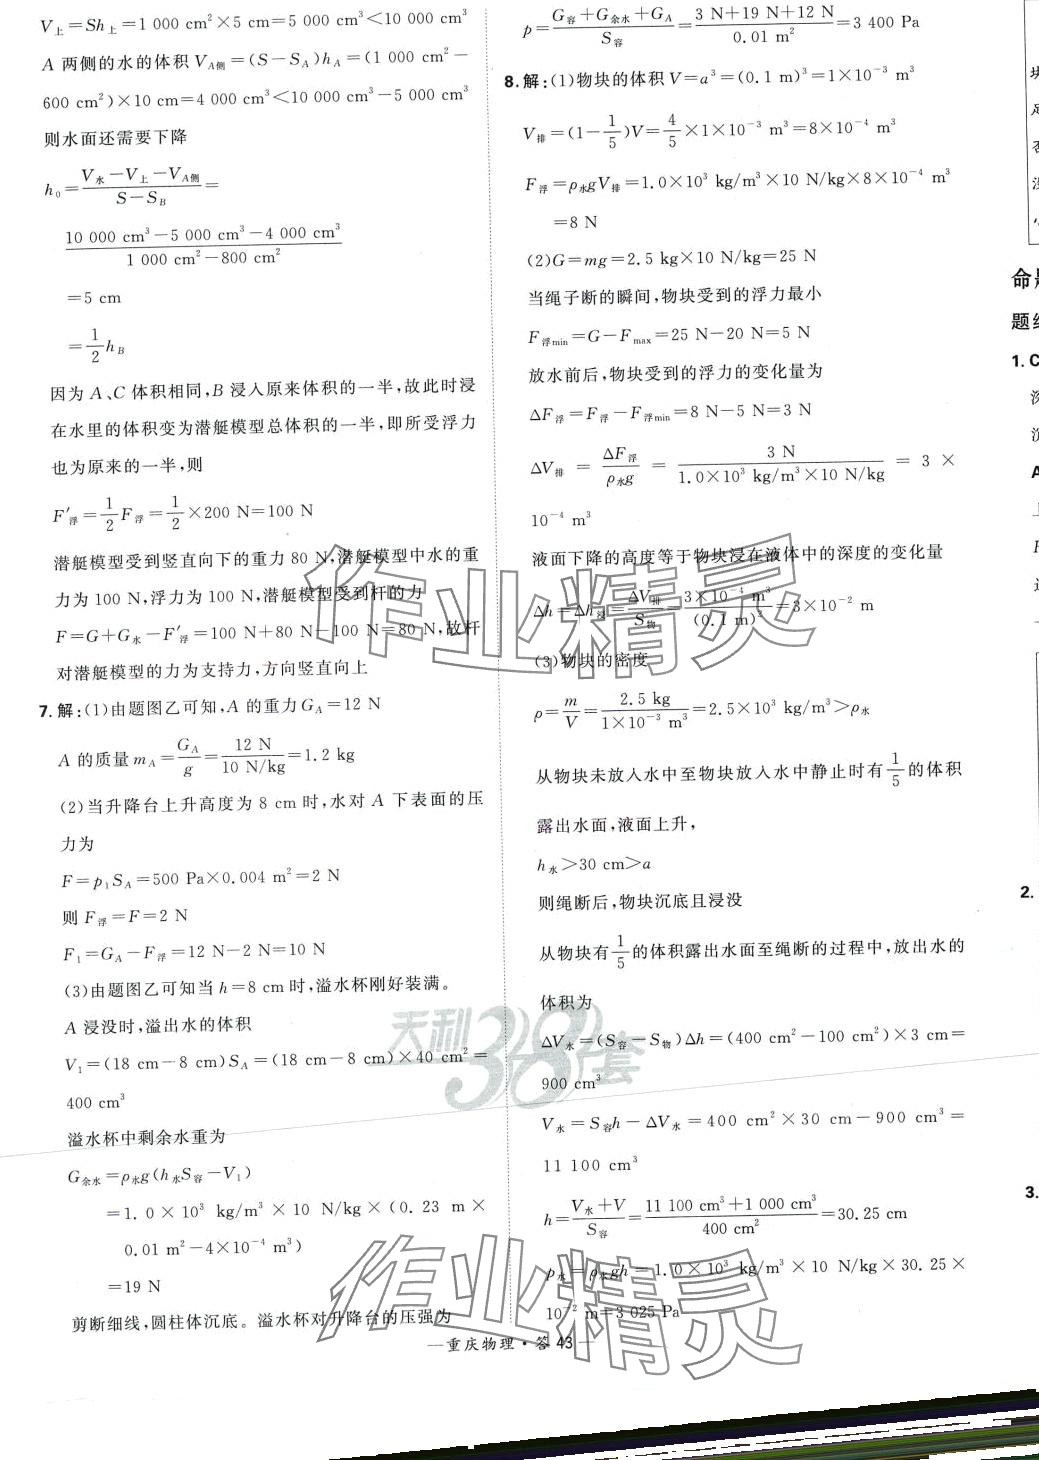 V上=Sh上=1 000 cm²×5 cm=5 000 cm³<10 000 cm³
A 两侧的水的体积 VA侧=(S-SA)hA=(1 000 cm²-
600 cm²)×10 cm=4 000 cm³<10 000 cm³-5 000 cm³
则水面还需要下降
h₀=(V水-V上-VA侧)/(S-SB)=
(10 000 cm³-5 000 cm³-4 000 cm³)/(1 000 cm²-800 cm²)
=5 cm
=1/2 hB
因为 A、C 体积相同,B 浸入原来体积的一半,故此时浸
在水里的体积变为潜艇模型总体积的一半,即所受浮力
也为原来的一半,则
F′浮=1/2 F浮=1/2×200 N=100 N
潜艇模型受到竖直向下的重力 80 N,潜艇模型中水的重
力为 100 N,浮力为 100 N,潜艇模型受到杆的力
F=G+G水-F′浮=100 N+80 N-100 N=80 N,故杆
对潜艇模型的力为支持力,方向竖直向上
7.解:(1)由题图乙可知,A 的重力 GA=12 N
A 的质量 mA=GA/g=12 N/(10 N/kg)=1.2 kg
(2)当升降台上升高度为 8 cm 时,水对 A 下表面的压
力为
F=p₁SA=500 Pa×0.004 m²=2 N
则 F浮=F=2 N
F₁=GA-F浮=12 N-2 N=10 N
(3)由题图乙可知当 h=8 cm 时,溢水杯刚好装满。
A 浸没时,溢出水的体积
V₁=(18 cm-8 cm)SA=(18 cm-8 cm)×40 cm²=
400 cm³
溢水杯中剩余水重为
G余水=ρ水g(h水S容-V₁)
=1.0×10³ kg/m³×10 N/kg×(0.23 m×
0.01 m²-4×10⁻⁴ m³)
=19 N
剪断细线,圆柱体沉底。溢水杯对升降台的压强为
p=(G容+G余水+GA)/S容=(3 N+19 N+12 N)/(0.01 m²)=3 400 Pa
8.解:(1)物块的体积 V=a³=(0.1 m)³=1×10⁻³ m³
V排=(1-1/5)V=4/5×1×10⁻³ m³=8×10⁻⁴ m³
F浮=ρ水gV排=1.0×10³ kg/m³×10 N/kg×8×10⁻⁴ m³
=8 N
(2)G=mg=2.5 kg×10 N/kg=25 N
当绳子断的瞬间,物块受到的浮力最小
F浮min=G-Fmax=25 N-20 N=5 N
放水前后,物块受到的浮力的变化量为
ΔF浮=F浮-F浮min=8 N-5 N=3 N
ΔV排=ΔF浮/(ρ水g)=3 N/(1.0×10³ kg/m³×10 N/kg)=3×
10⁻⁴ m³
液面下降的高度等于物块浸在液体中的深度的变化量
Δh=Δh浸=ΔV排/S物=(3×10⁻⁴ m³)/(0.1 m)²=3×10⁻² m
(3)物块的密度
ρ=m/V=2.5 kg/(1×10⁻³ m³)=2.5×10³ kg/m³>ρ水
从物块未放入水中至物块放入水中静止时有1/5的体积
露出水面,液面上升,
h水>30 cm>a
则绳断后,物块沉底且浸没
从物块有1/5的体积露出水面至绳断的过程中,放出水的
体积为
ΔV水=(S容-S物)Δh=(400 cm²-100 cm²)×3 cm=
900 cm³
V水=S容h-ΔV水=400 cm²×30 cm-900 cm³=
11 100 cm³
h=(V水+V)/S容=(11 100 cm³+1 000 cm³)/(400 cm²)=30.25 cm
p水=ρ水gh=1.0×10³ kg/m³×10 N/kg×30.25×
10⁻² m=3 025 Pa
—重庆物理·答 43—
作业精灵
天利38套
作业精灵
块
足
命
题
1.C
2.
3.